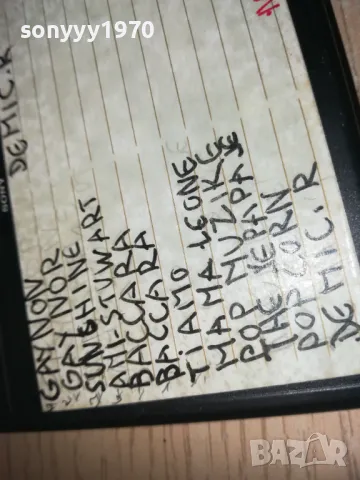 sonyyy1970
DE MIC.R
SONY
GAYNOV
GAY NOR
SUNSHINE
AMI-STUWART
BACCARA
BACCARA
TI AMO
MAMA LEONE
POP MUZIKE
THE
POP CORN
DE MIC.R
BAZAR